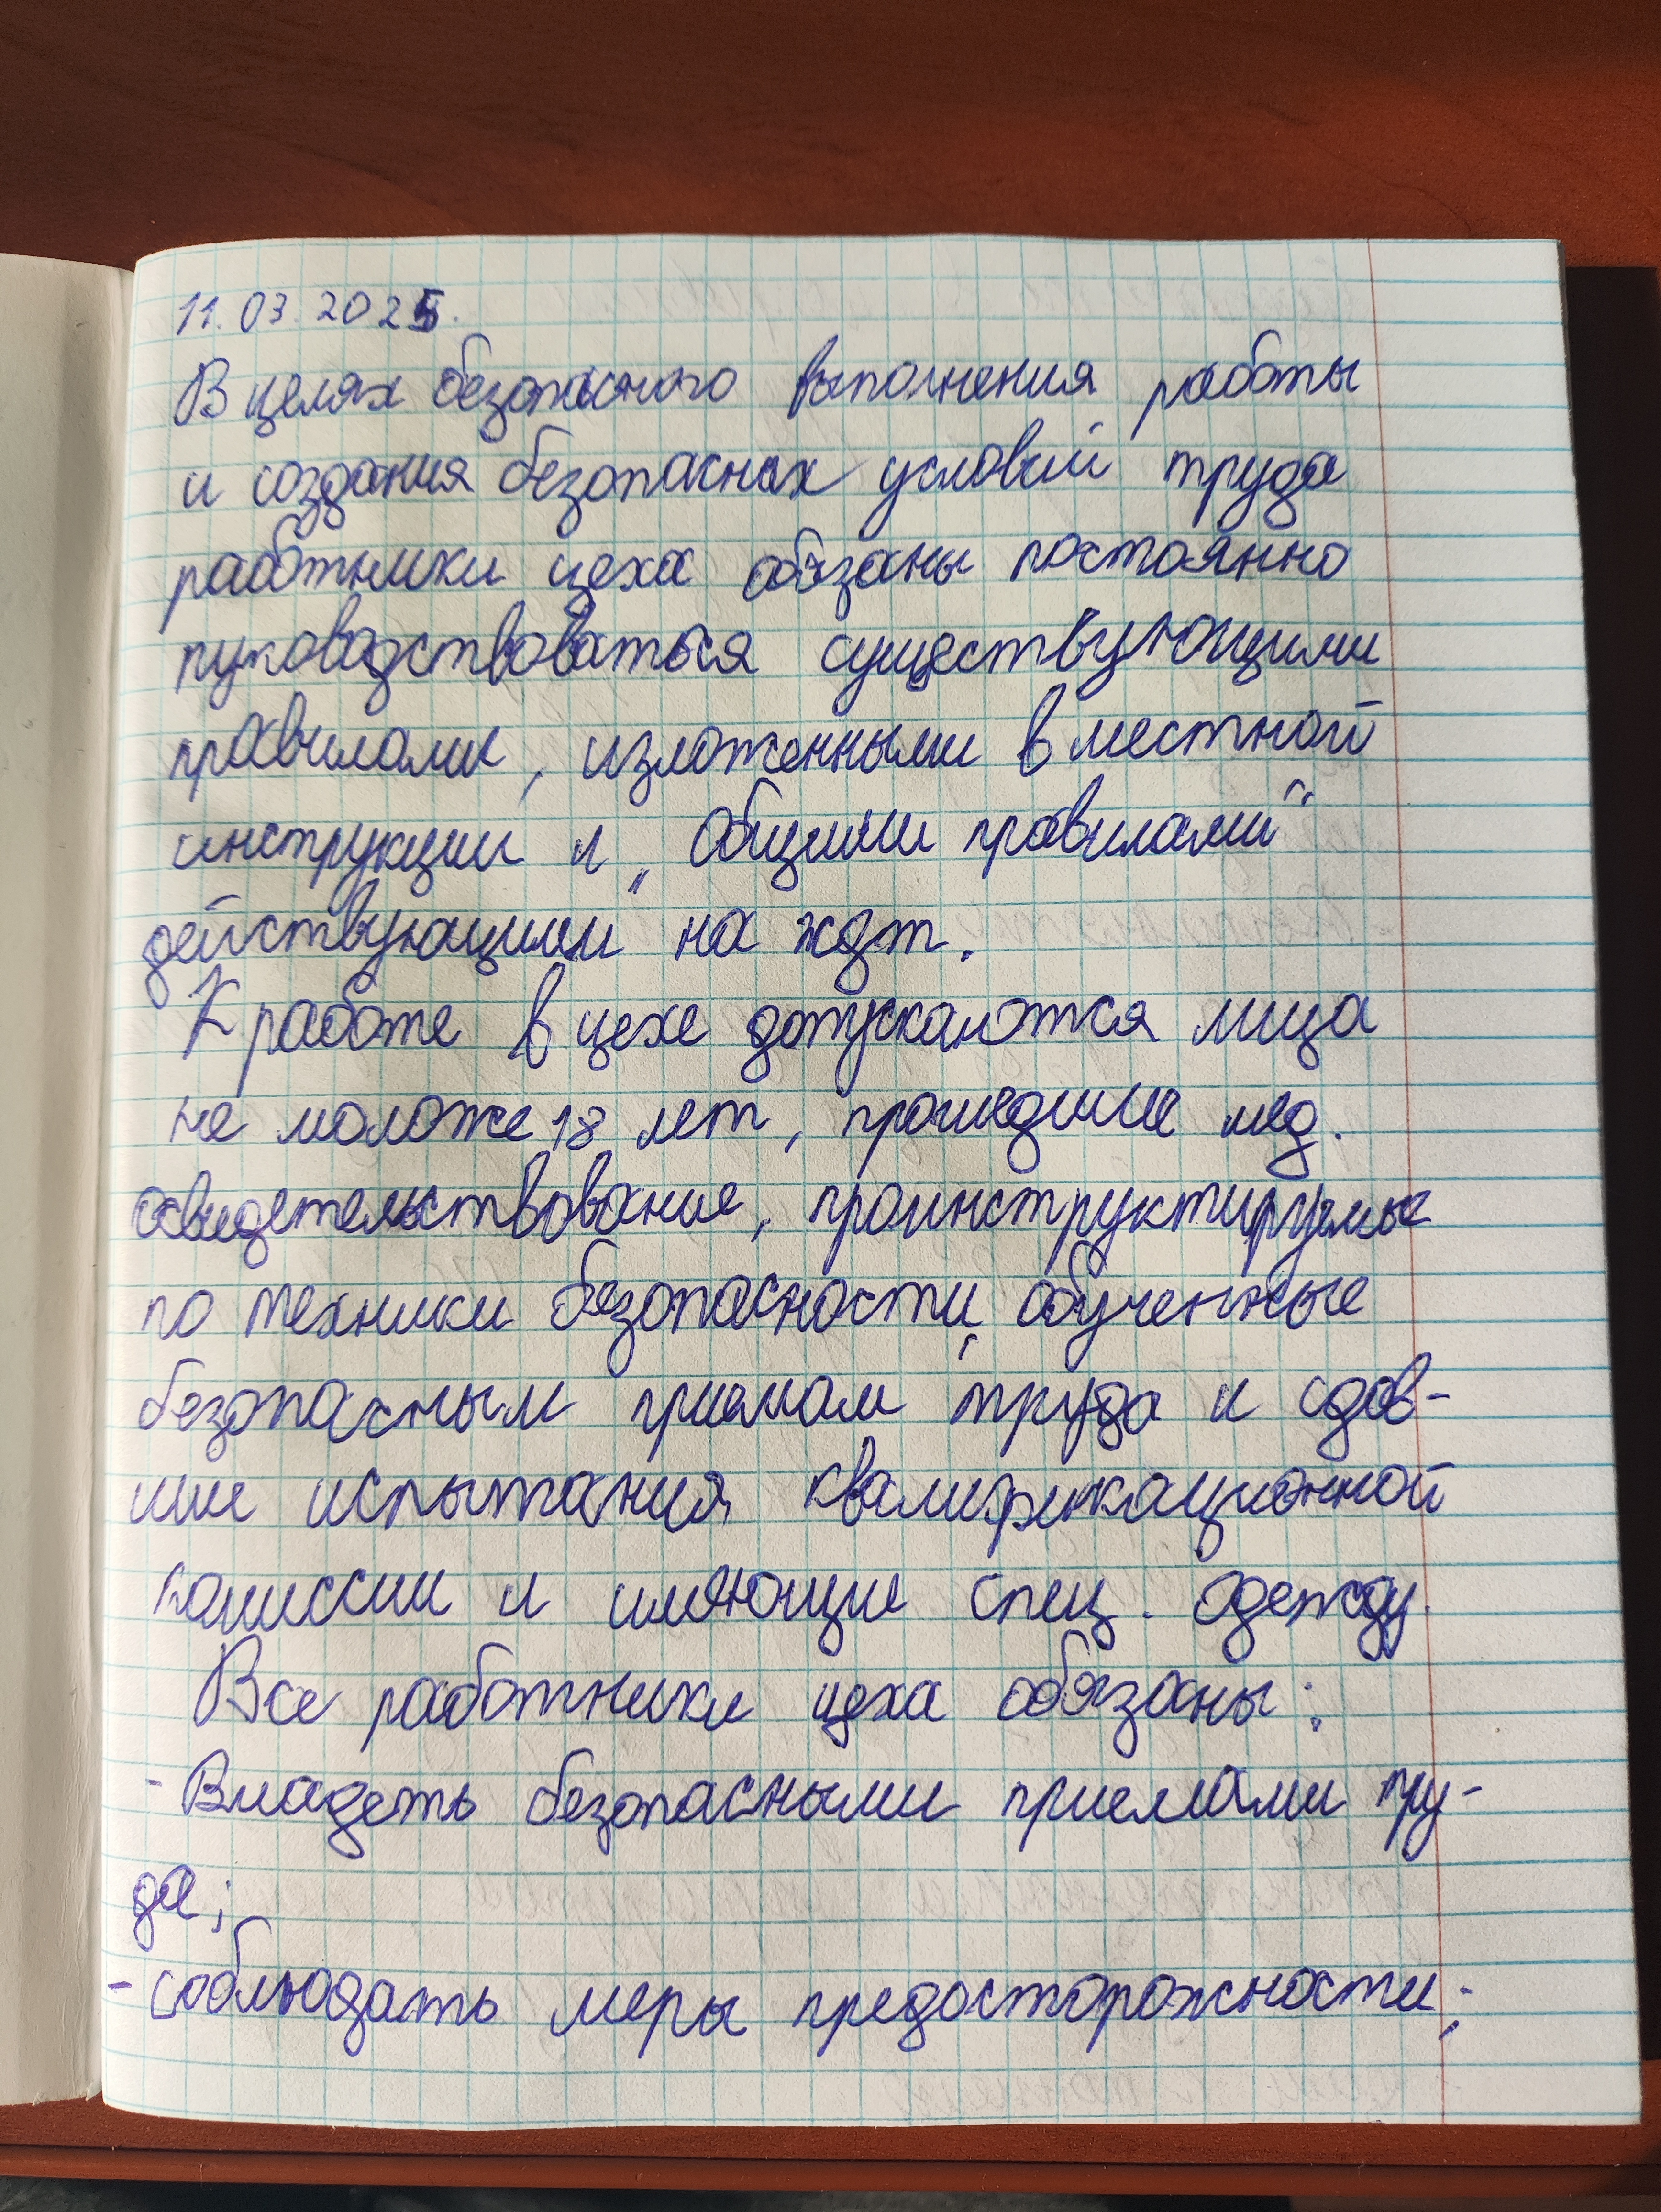 11.03.2025.
В целях безопасного выполнения работы
и создания безопасных условий труда
работники цеха обязаны постоянно
руководствоваться существующими
правилами, изложенными в местной
инструкции и „Общими правилами“
действующими на ждт.
К работе в цехе допускаются лица
не моложе 18 лет, прошедшие мед.
освидетельствование, проинструктируемые
по техники безопасности, обученные
безопасным приемам труда и сдав-
шие испытания квалификационной
комиссии и имеющие спец. одежду.
Все работники цеха обязаны:
- Владеть безопасными приемами тру-
да;
- соблюдать меры предосторожности;